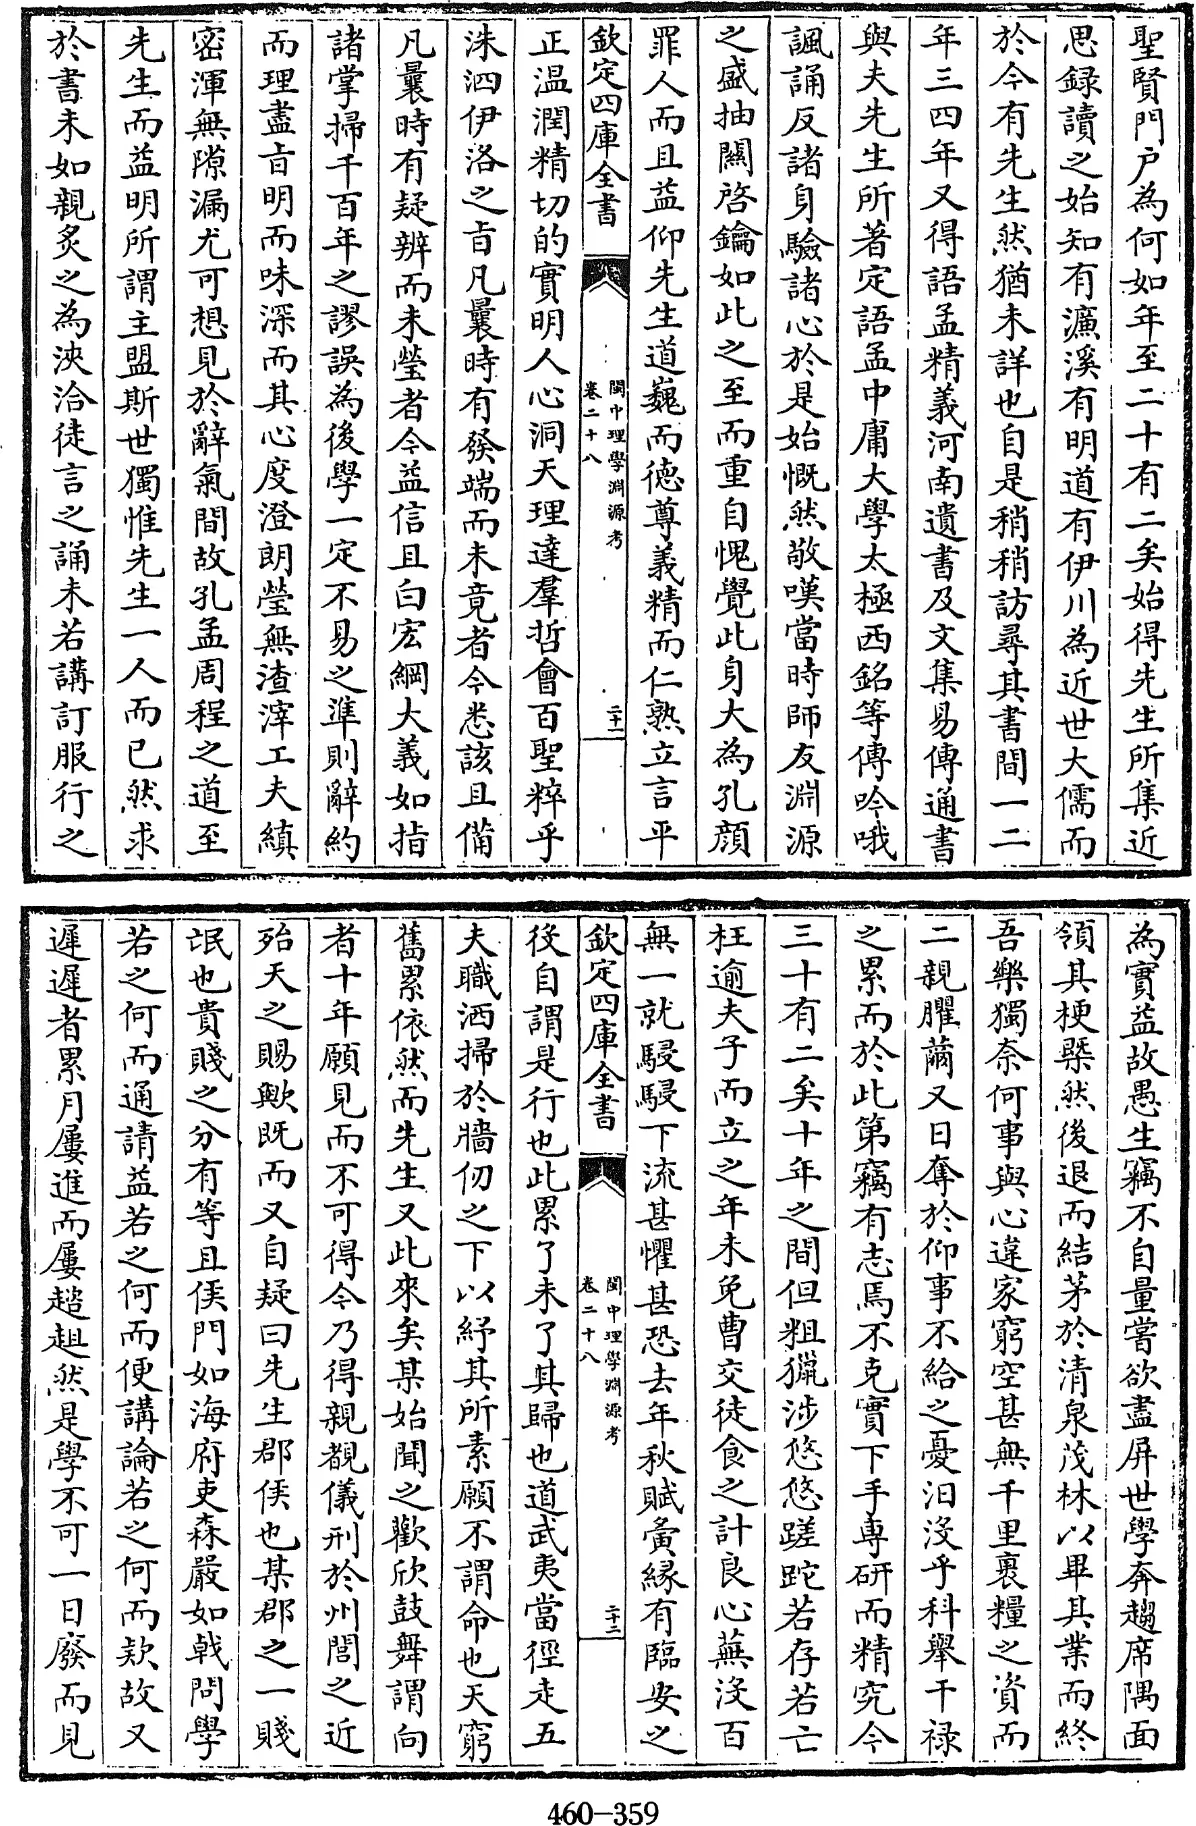 聖賢門户為何如年至二十有二矣始得先生所集近
思録讀之始知有濂溪有明道有伊川為近世大儒而
於今有先生然猶未詳也自是稍稍訪尋其書間一二
年三四年又得語孟精義河南遺書及文集易傳通書
與夫先生所著定語孟中庸大學太極西銘等傳吟哦
諷誦反諸身驗諸心於是始慨然敬嘆當時師友淵源
之盛抽關啓鑰如此之至而重自愧覺此身大為孔顔
罪人而且益仰先生道巍而德尊義精而仁熟立言平
欽定四庫全書
閩中理學淵源考
卷二十八
二十一
正温潤精切的實明人心洞天理達羣哲會百聖粹乎
洙泗伊洛之㫖凡曩時有發端而未竟者今悉該且備
凡曩時有疑辨而未瑩者今益信且白宏綱大義如指
諸掌掃千百年之謬誤為後學一定不易之準則辭約
而理盡㫖明而味深而其心度澄朗瑩無渣滓工夫縝
密渾無隙漏尤可想見於辭氣間故孔孟周程之道至
先生而益明所謂主盟斯世獨惟先生一人而已然求
於書未如親炙之為浹洽徒言之誦未若講訂服行之
為實益故愚生竊不自量嘗欲盡屏世學奔趨席隅面
領其梗槩然後退而結茅於清泉茂林以畢其業而終
吾樂獨奈何事與心違家窮空甚無千里裹糧之資而
二親臞薾又日奪於仰事不給之憂汩沒乎科舉干禄
之累而於此第竊有志焉不克實下手専研而精究今
三十有二矣十年之間但粗獵涉悠悠蹉跎若存若亡
枉逾夫子而立之年未免曹交徒食之計良心蕪沒百
無一就駸駸下流甚懼甚恐去年秋賦夤縁有臨安之
欽定四庫全書
閩中理學淵源考
卷二十八
二十二
役自謂是行也此累了未了其歸也道武夷當徑走五
夫職洒掃於牆仞之下以紓其所素願不謂命也天窮
舊累依然而先生又此來矣某始聞之歡欣鼓舞謂向
者十年願見而不可得今乃得親覩儀刑於州閭之近
殆天之賜歟既而又自疑曰先生郡侯也某郡之一賤
氓也貴賤之分有等且侯門如海府吏森嚴如戟問學
若之何而通請益若之何而便講論若之何而欵故又
遲遲者累月屢進而屢趦趄然是學不可一日廢而見
460-359